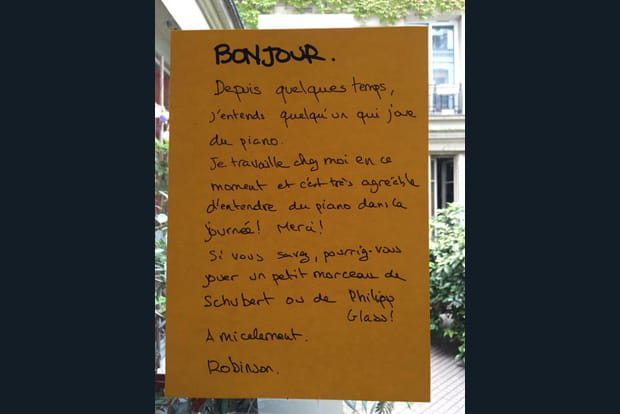 BONJOUR.
Depuis quelques temps,
j'entends quelqu'un qui joue
du piano.
Je travaille chez moi en ce
moment et c'est très agréable
d'entendre du piano dans la
journée! Merci!
Si vous savez, pourriez-vous
jouer un petit morceau de
Schubert ou de Philipp
Glass!
Amicalement.
Robinson.